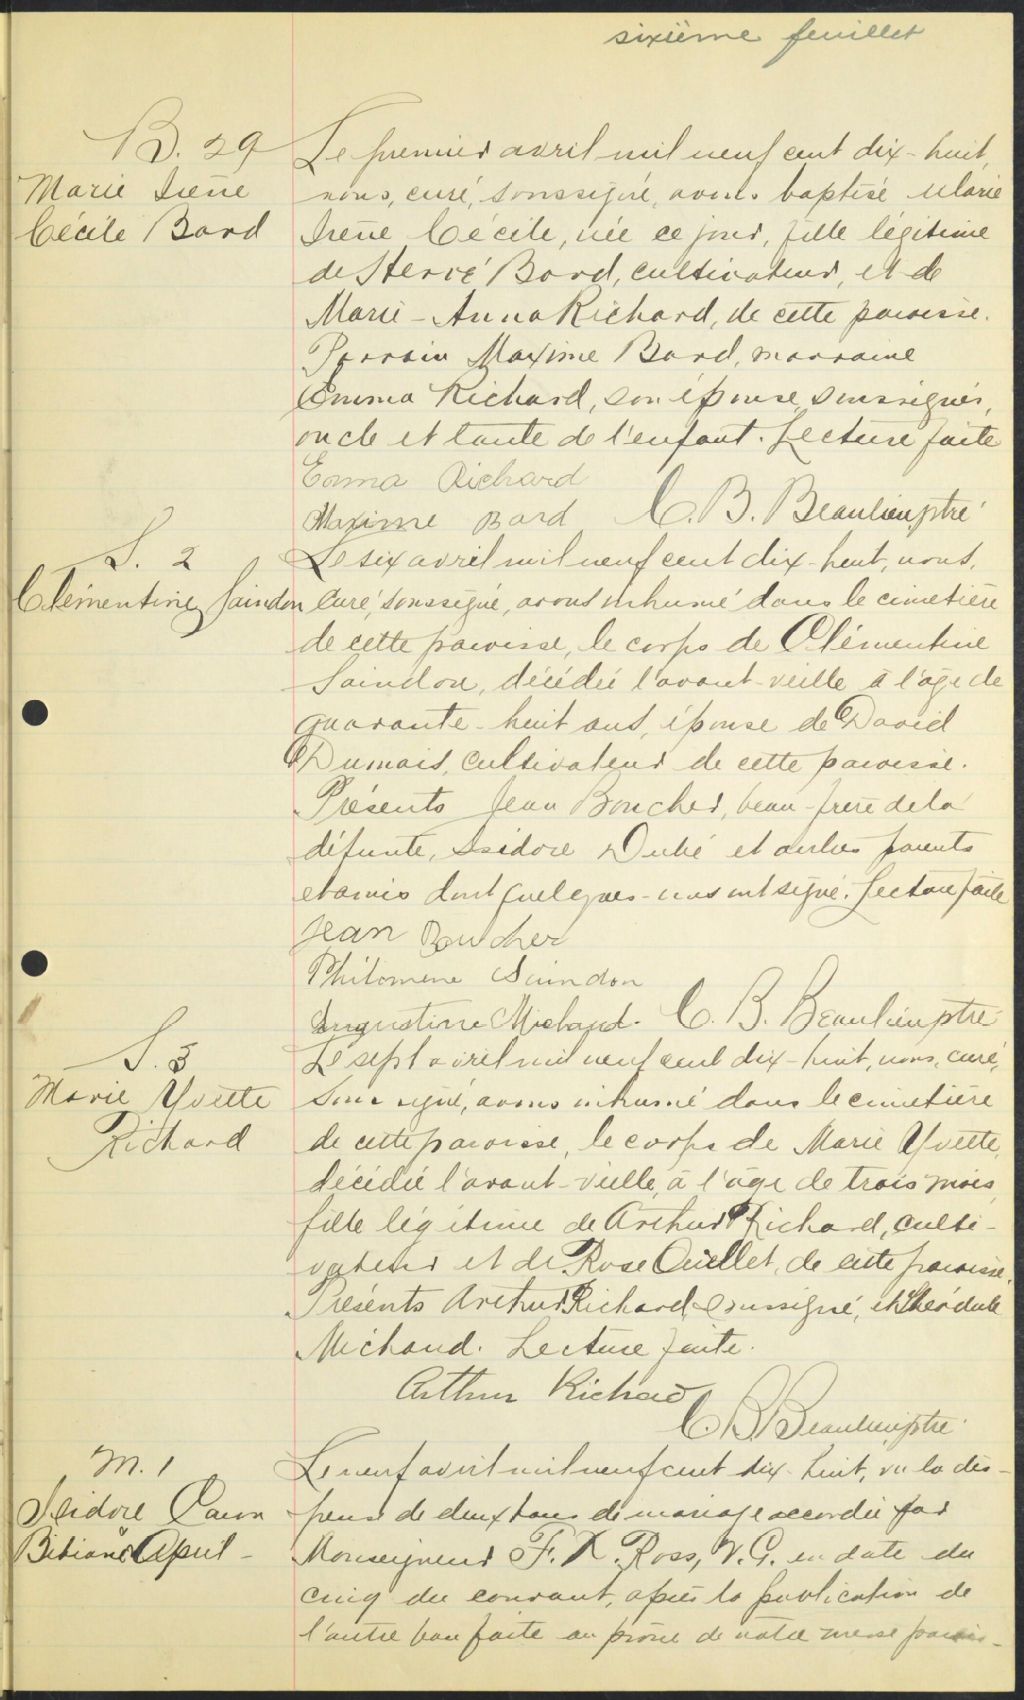 sixième feuillet
B. 29
Marie Irène
Cécile Bard
Le premier avril mil neuf cent dix-huit,
nous, curé, soussigné, avons baptisé Marie
Irène Cécile, née ce jour, fille légitime
de Hervé Bard, cultivateur, et de
Marie-Anna Richard, de cette paroisse.
Parrain Maxime Bard, marraine
Emma Richard, son épouse, soussignés,
oncle et tante de l'enfant. Lecture faite
Emma Richard
Maxime Bard C. B. Beaulieu, ptre
S. 2
Clémentine Saindon
Le six avril mil neuf cent dix-huit, nous,
curé, soussigné, avons inhumé dans le cimetière
de cette paroisse, le corps de Clémentine
Saindon, décédée l'avant-veille à l'âge de
quarante-huit ans, épouse de David
Dumais, cultivateur de cette paroisse.
Présents Jean Boucher, beau-frère de la
défunte, Isidore Dubé et autres parents
et amis dont quelques-uns ont signé. Lecture faite
Jean Boucher
Philomène Saindon
Augustine Michaud. C. B. Beaulieu ptre
S. 3
Marie Yvette
Richard
Le sept avril mil neuf cent dix-huit, nous, curé,
soussigné, avons inhumé dans le cimetière
de cette paroisse, le corps de Marie Yvette,
décédée l'avant-veille, à l'âge de trois mois,
fille légitime de Arthur Richard, culti-
vateur et de Rose Ouellet, de cette paroisse.
Présents Arthur Richard, soussigné, et Théodule
Michaud. Lecture faite.
Arthur Richard
C. B. Beaulieu, ptre
M. 1
Isidore Caron
&
Bibiane April
Le neuf avril mil neuf cent dix-huit, vu la dis-
pense de deux bans de mariage accordée par
Monseigneur F. X. Ross, V. G. en date du
cinq du courant, après la publication de
l'autre ban faite au prône de notre messe parois-